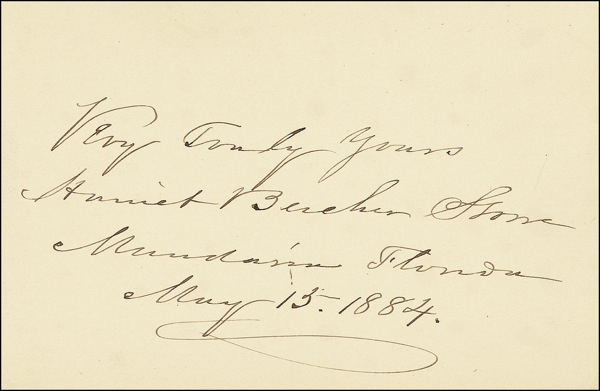 Very Truly Yours
Harriet Beecher Stowe
Mandarin Florida
May 15. 1884.